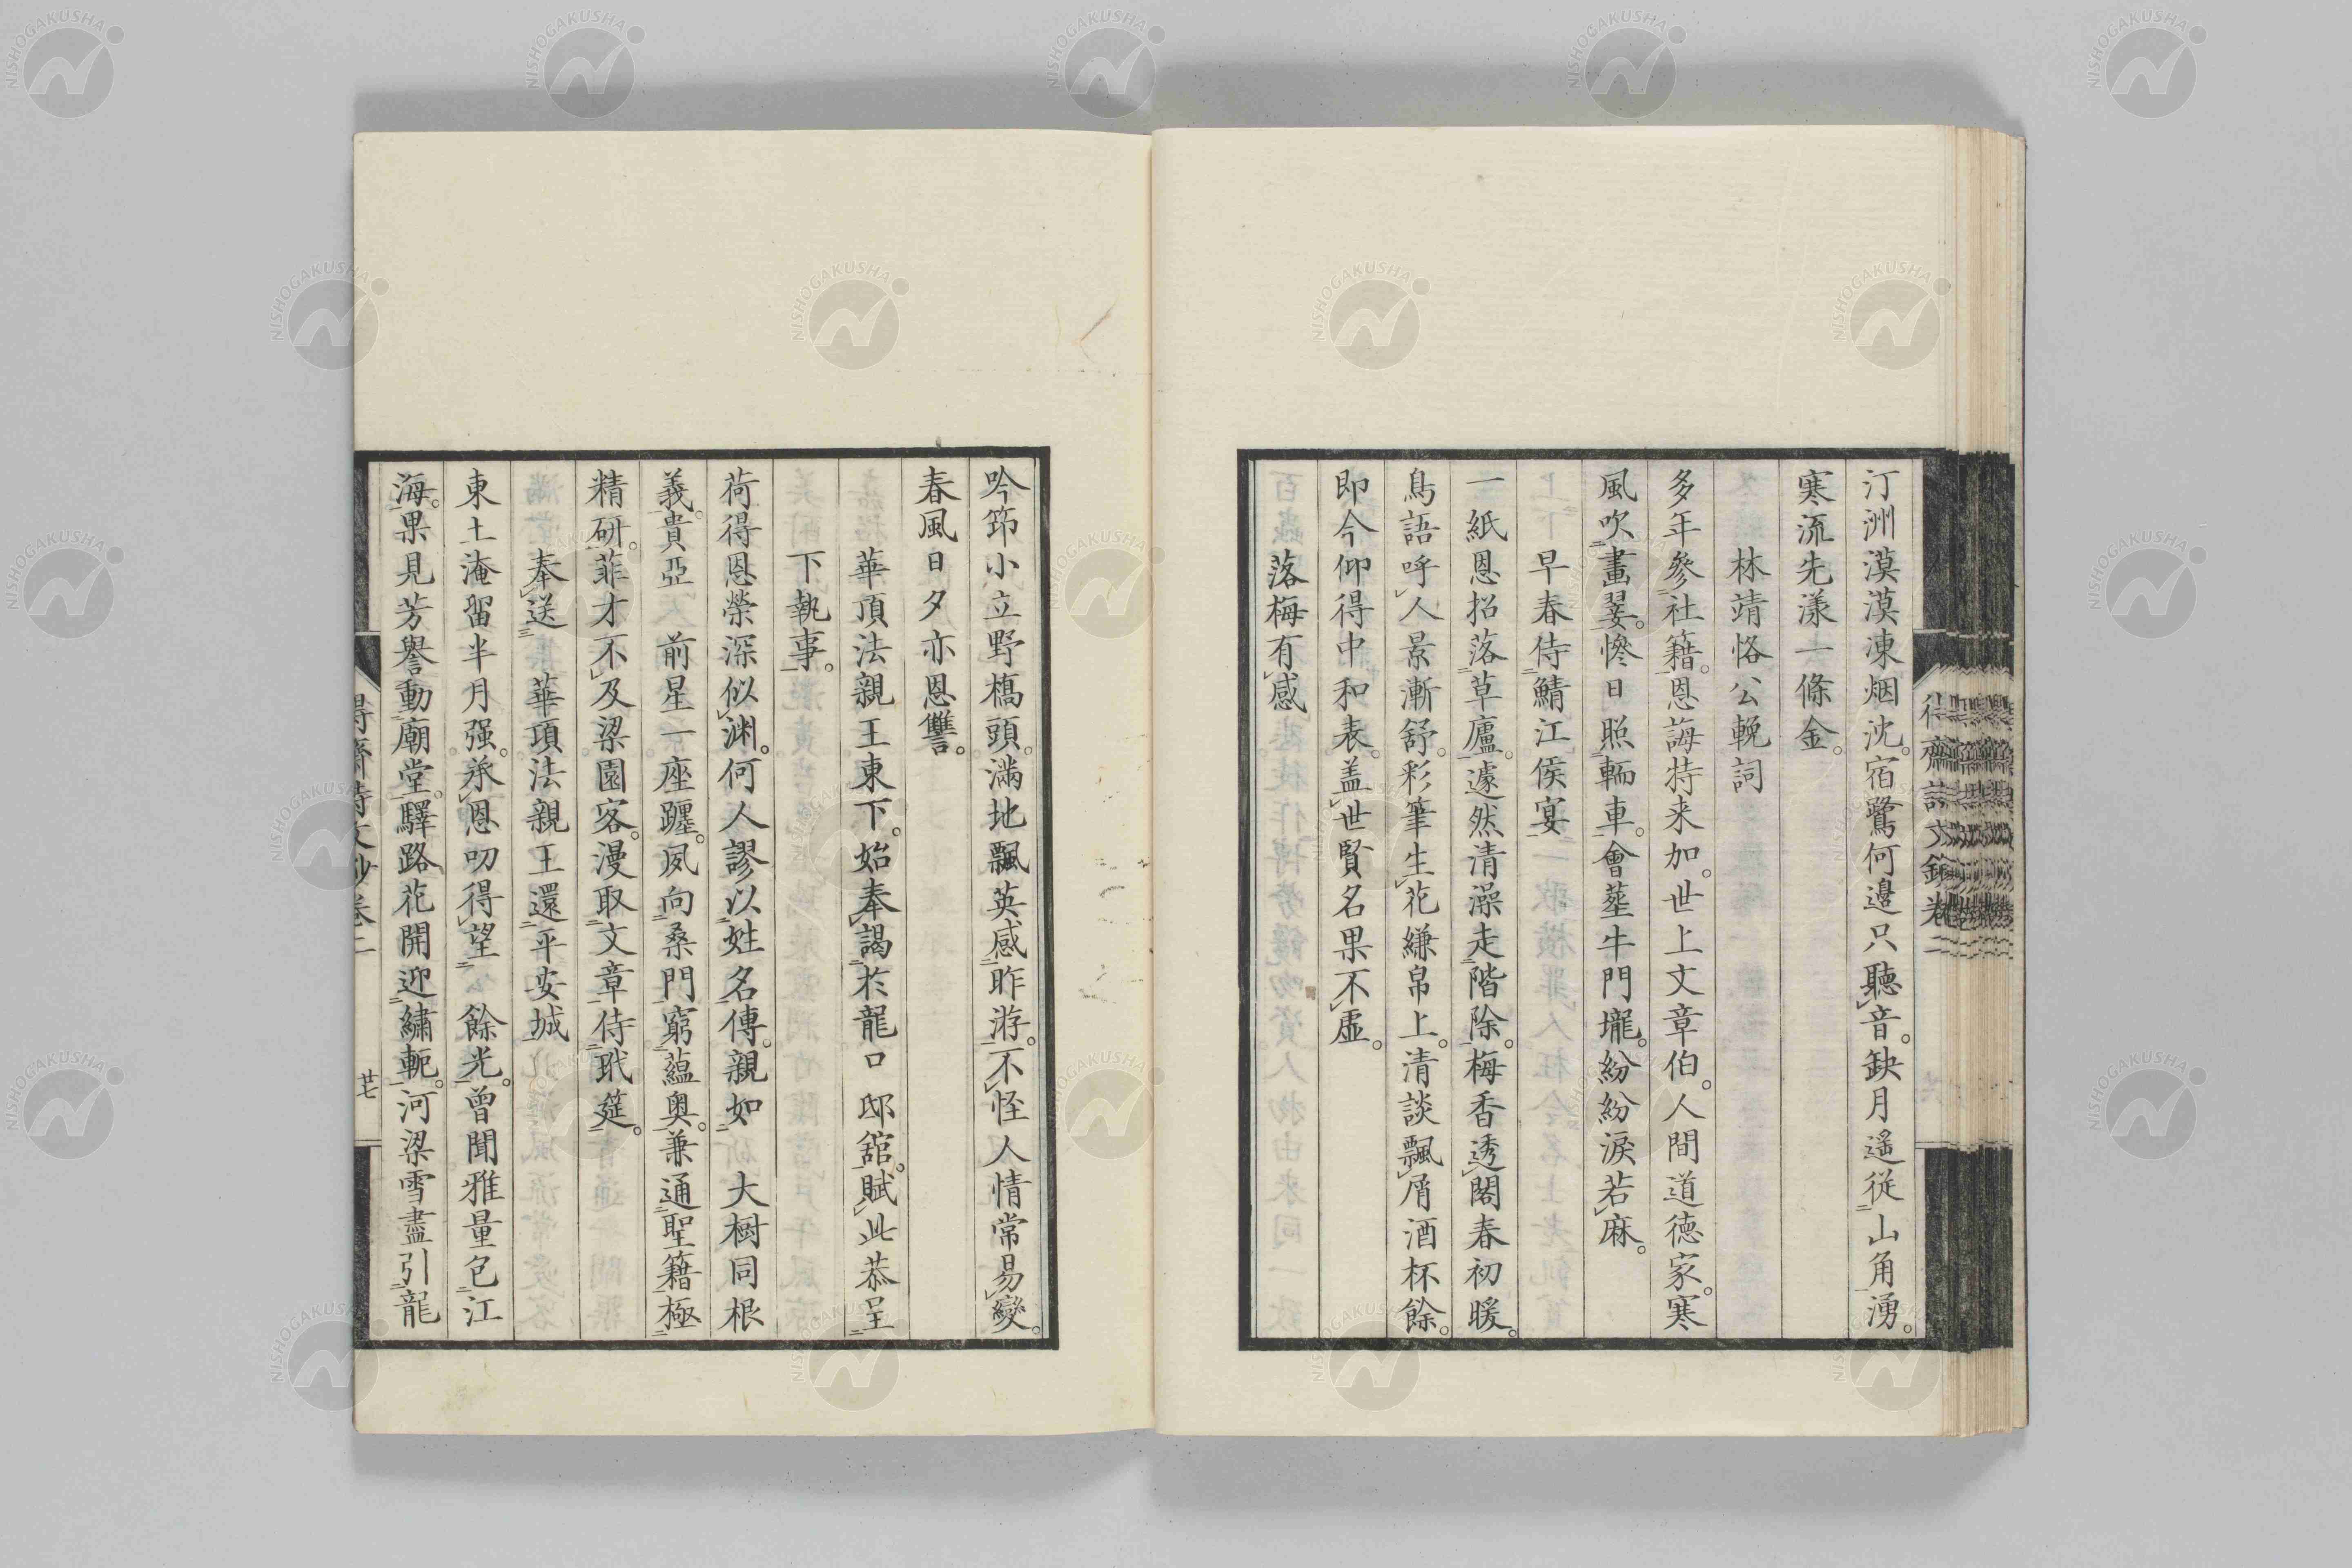 汀洲漠漠凍烟沈。宿鷺何邊只聽音。缺月遙從山角湧。
寒流先漾一條金。
林靖恪公輓詞
多年參社籍。恩誨特来加。世上文章伯。人間道德家。寒
風吹畫翣。慘日照輀車。會葬牛門壠。紛紛淚若麻。
早春侍鯖江侯宴
一紙恩招落草廬。遽然清澡走階除。梅香透閣春初暖。
鳥語呼人景漸舒。彩筆生花縑帛上。清談飄屑酒杯餘。
即今仰得中和表。盖世賢名果不虛。
落梅有感
吟筇小立野橋頭。滿地飄英感昨游。不怪人情常易變。
春風日夕亦恩讐。
華頂法親王東下。始奉謁於龍口 邸舘。賦此恭呈
下執事。
荷得恩榮深似渊。何人謬以姓名傳。親如 大樹同根
義。貴亞 前星一座躔。夙向桑門窮蘊奥。兼通聖籍極
精研。菲才不及梁園客。漫取文章侍玳筵。
奉送 華頂法親王還平安城
東土淹留半月强。承恩叨得望 餘光。曾聞雅量包江
海。果見芳譽動廟堂。驛路花開迎繡軛。河梁雪盡引龍
得齋詩文鈔卷二
廿七
NISHOGAKUSHA